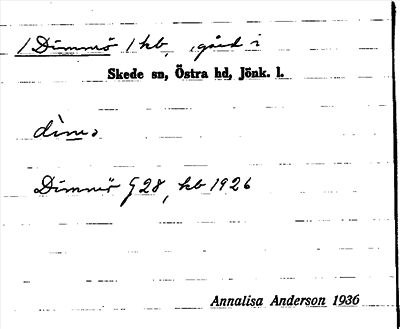 1 Dimmö 1 kb, gård i
Skede sn, Östra hd, Jönk. l.
Dimmör G 28, kb 1926
Annalisa Anderson 1936